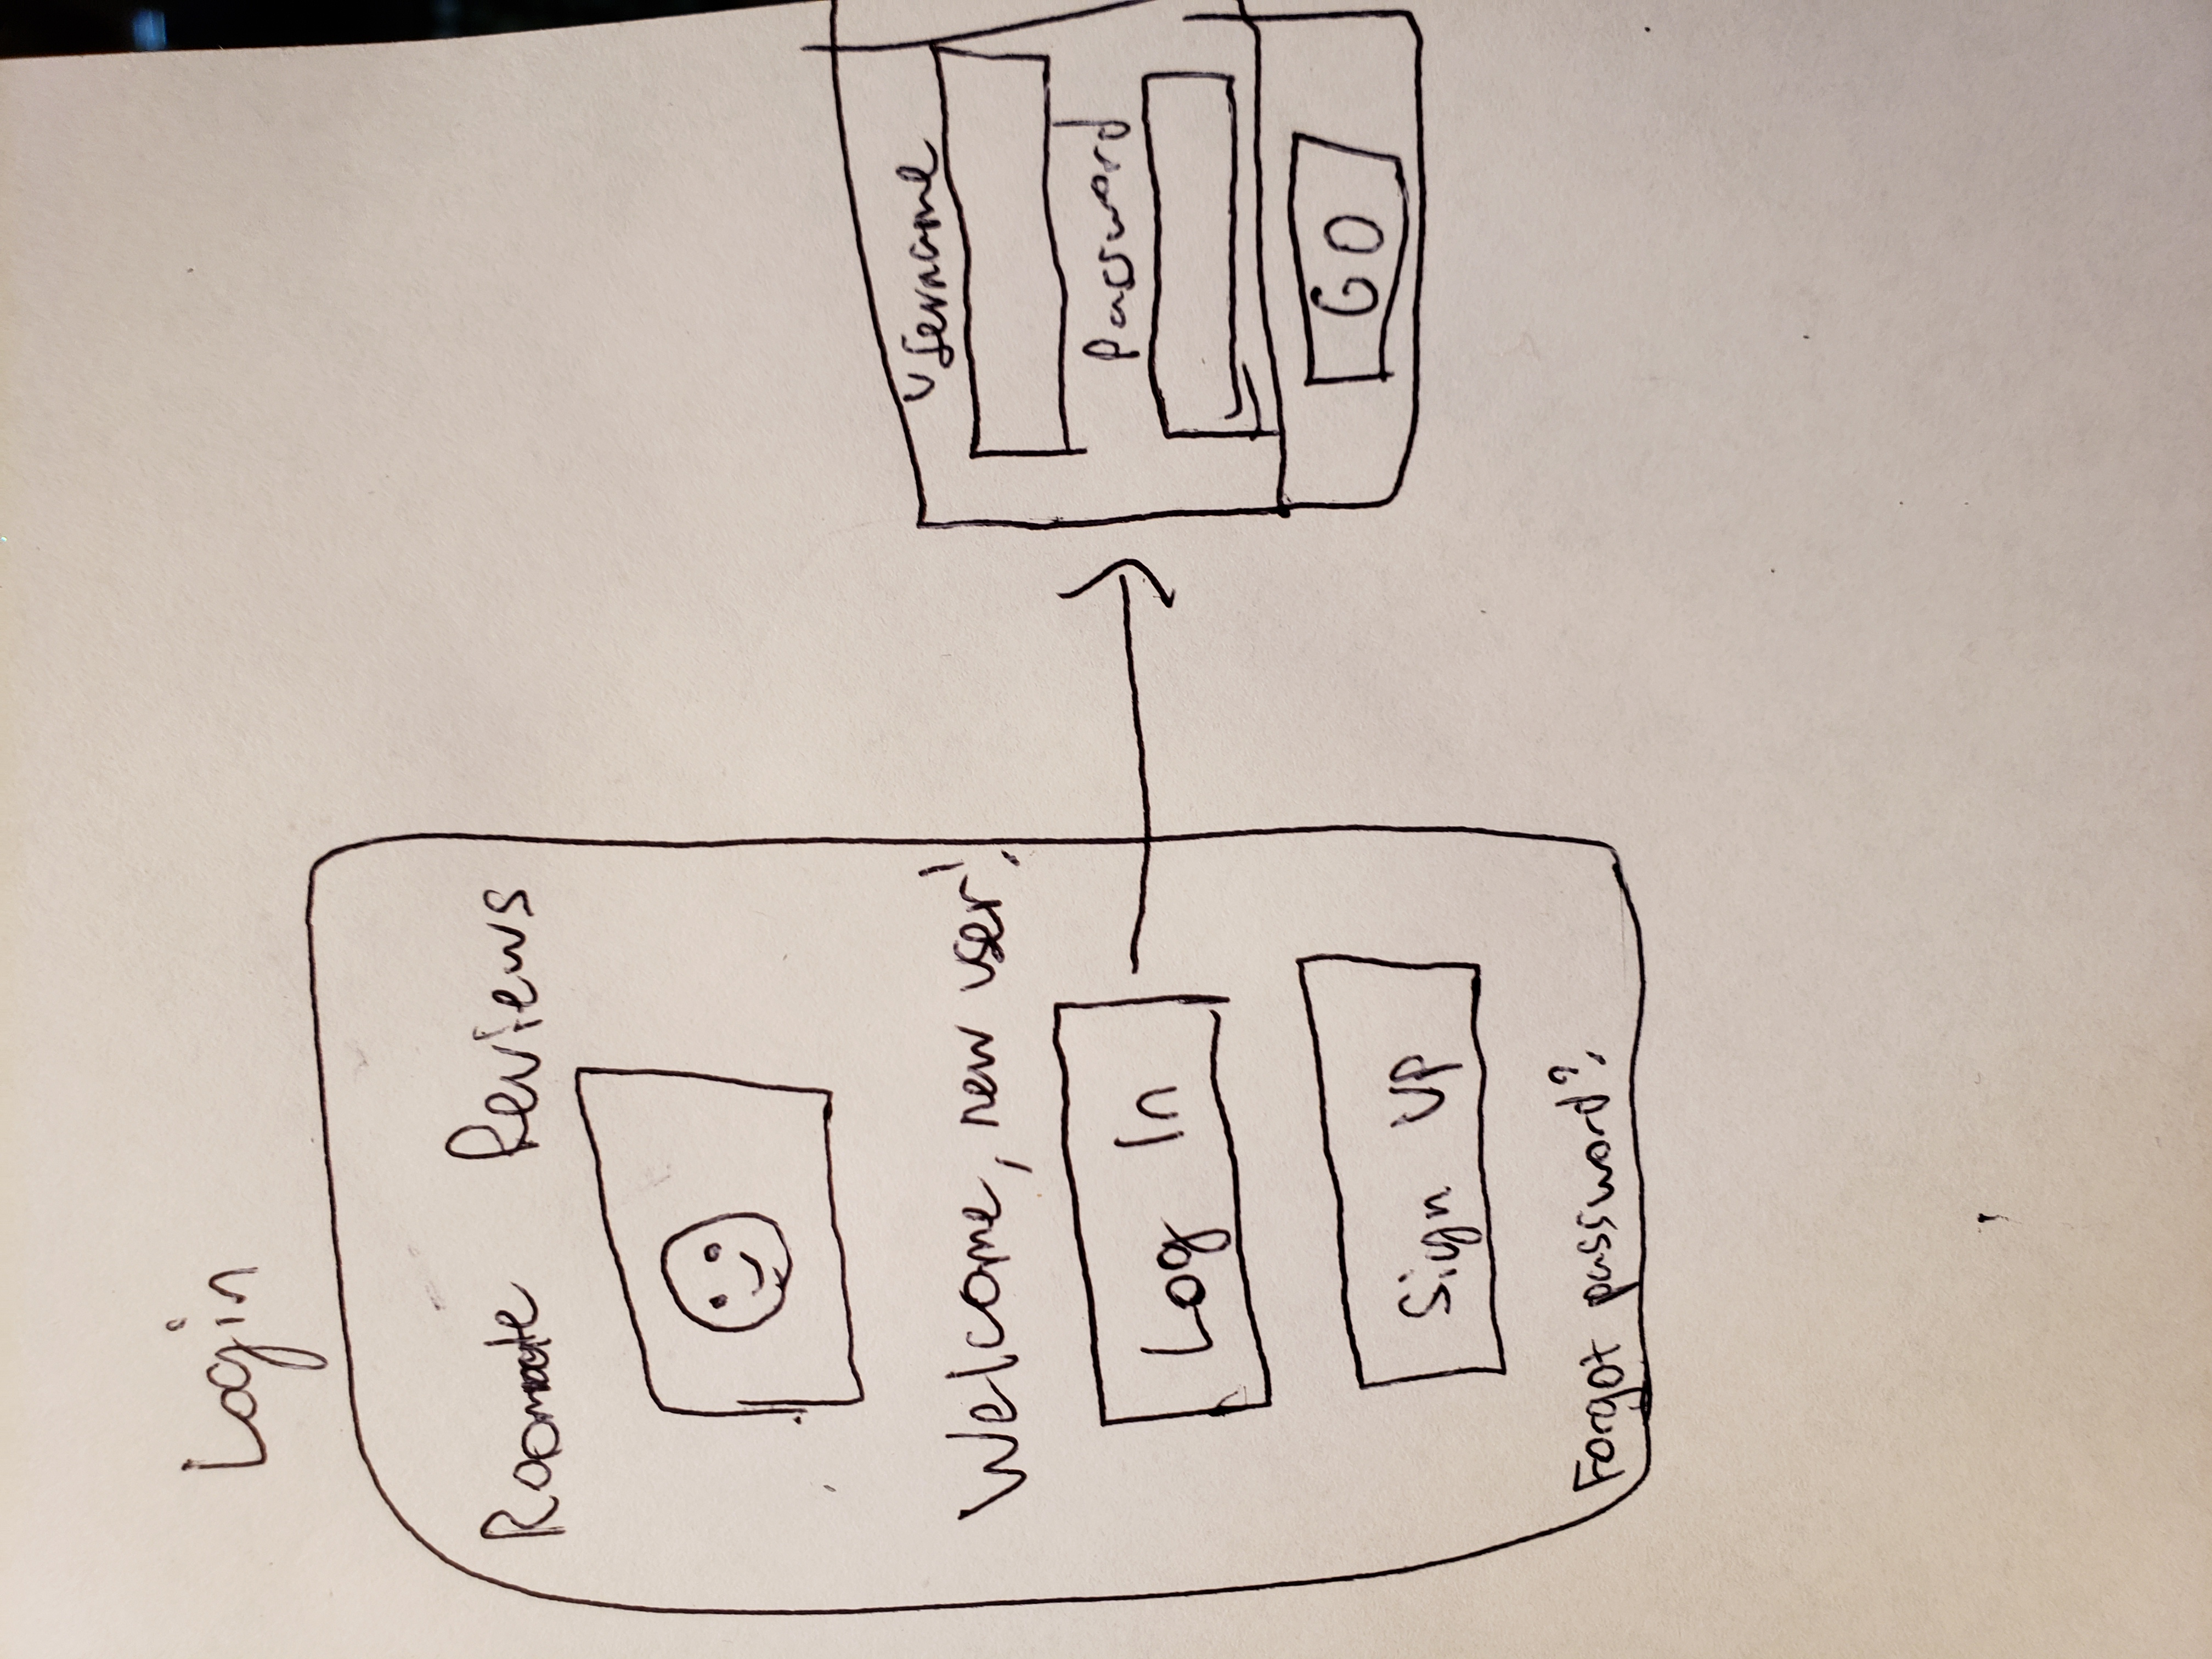 Login
Roommate Reviews
Welcome, new user!
Log In
Sign Up
Forgot password?
Username
Password
GO